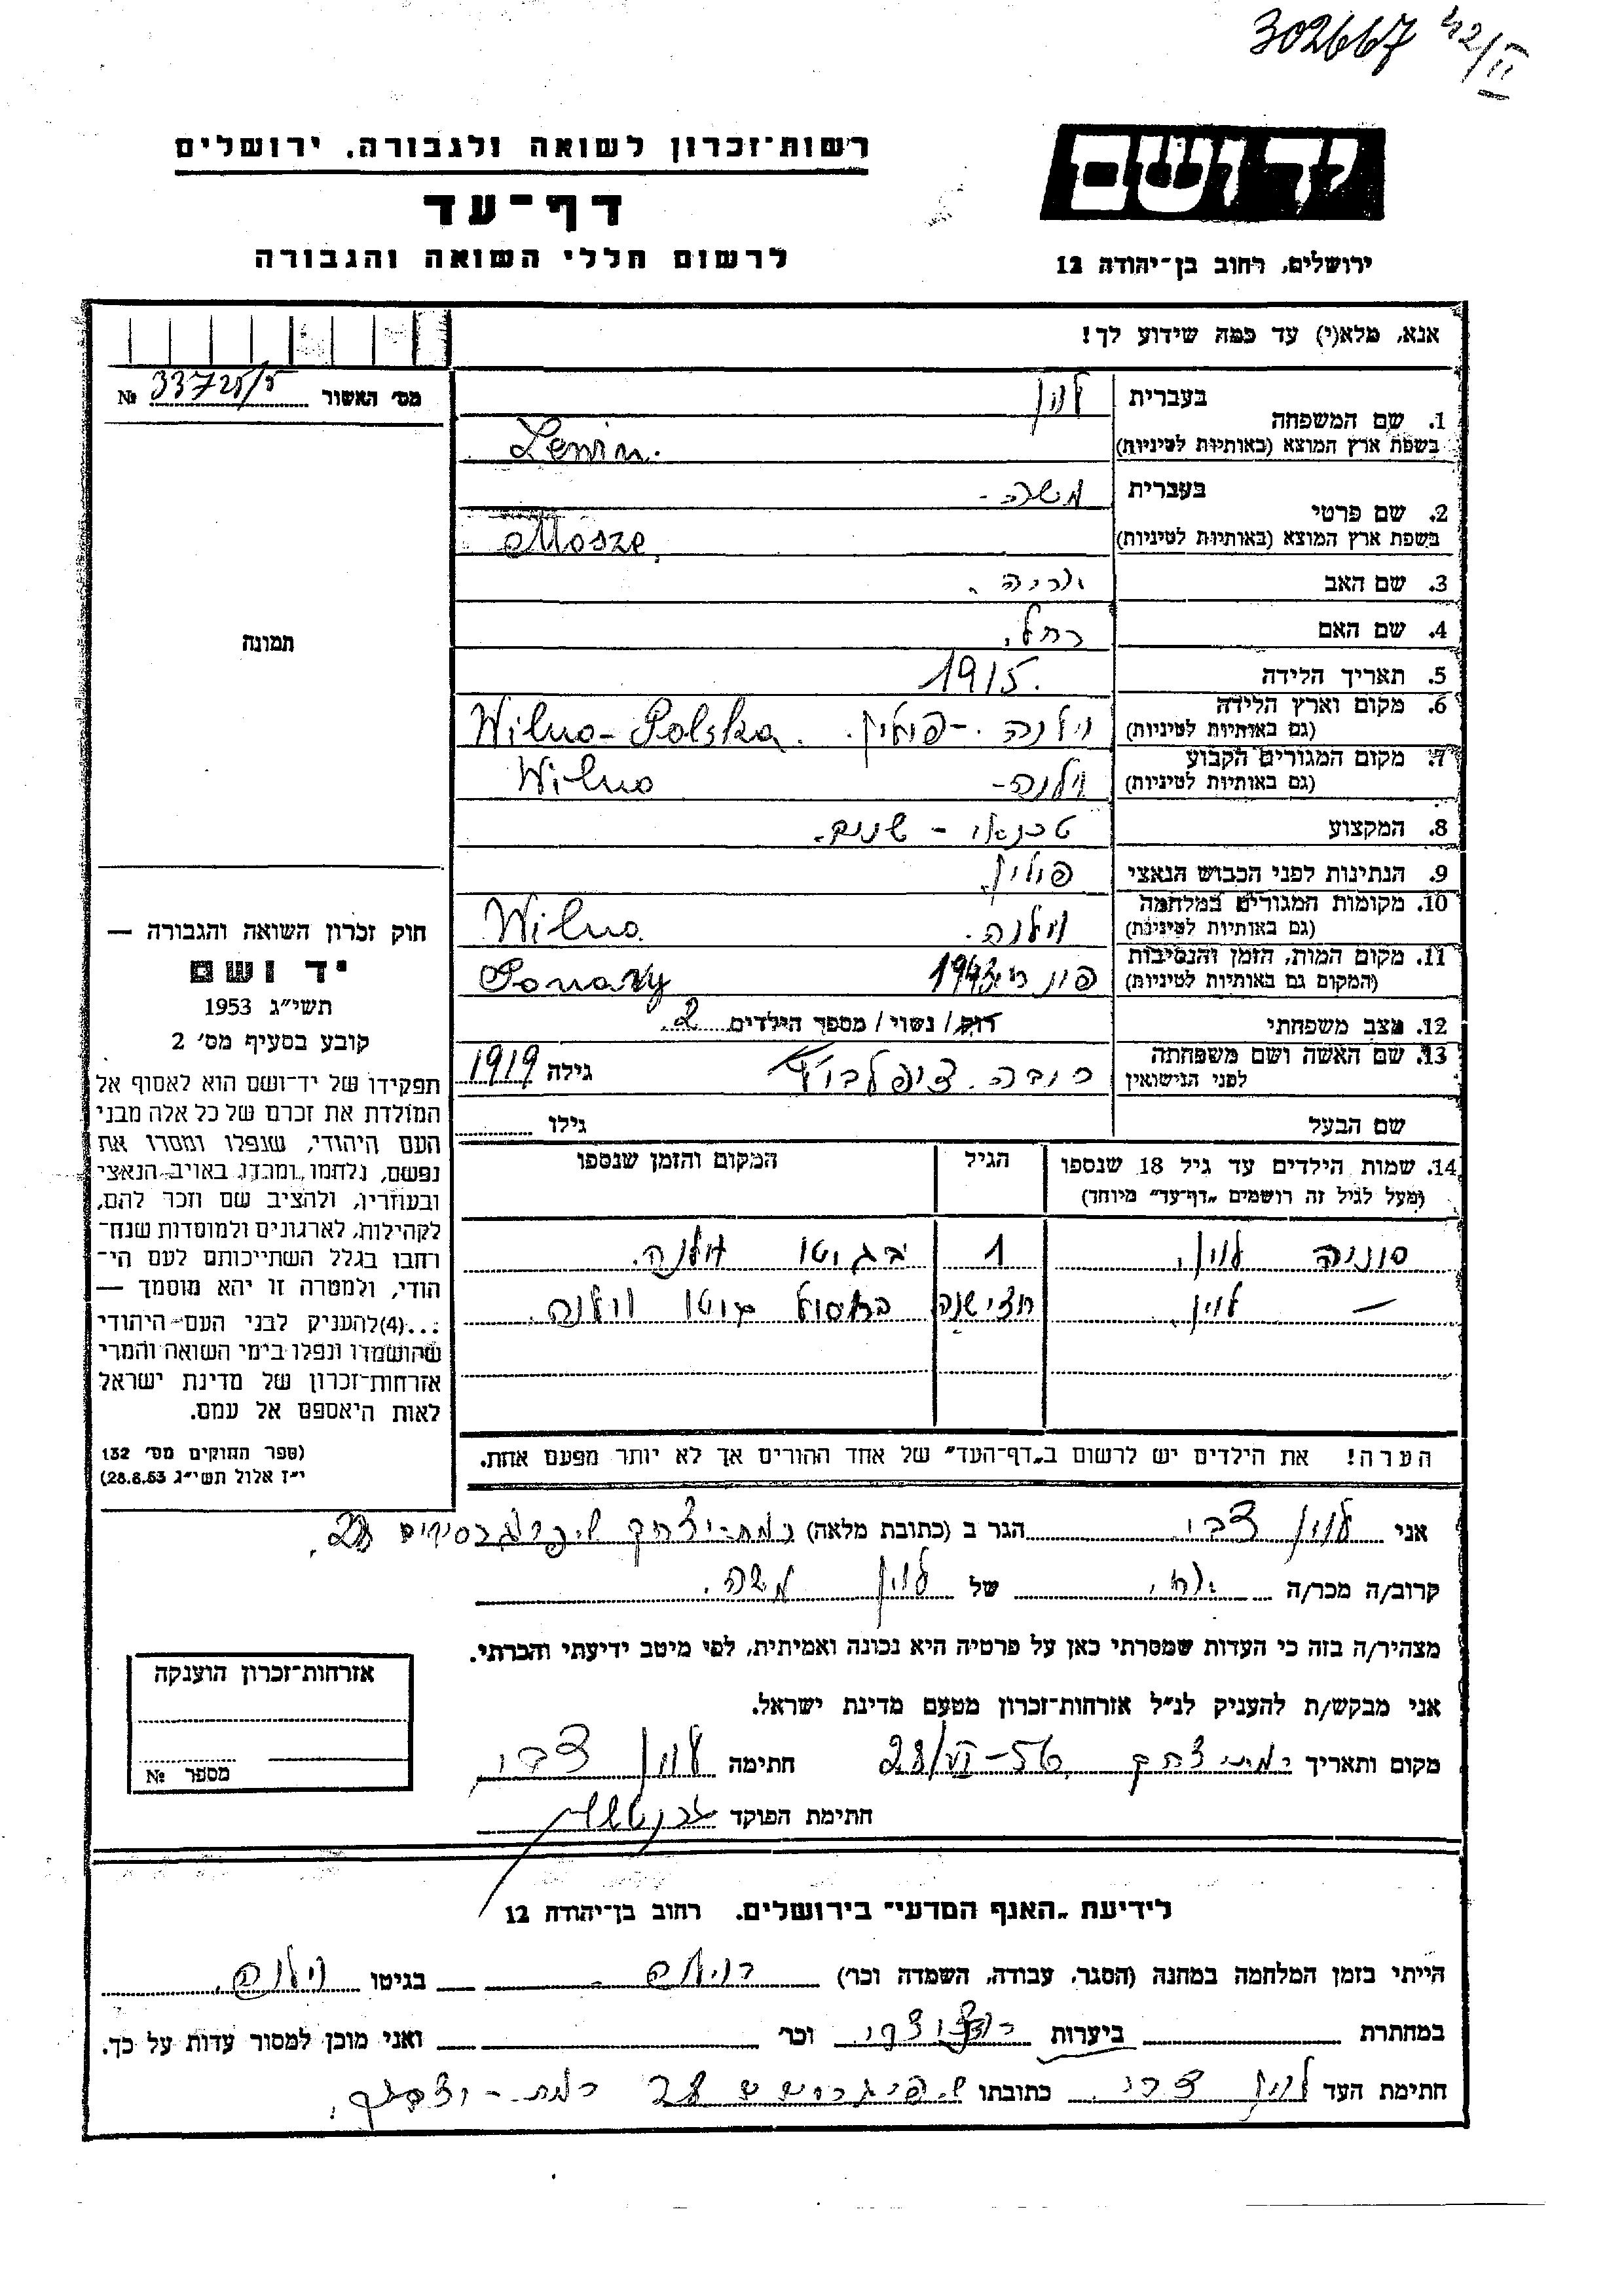 302667 42/II
יד ושם
רשות־זכרון לשואה ולגבורה, ירושלים
דף־עד
לרשום חללי השואה והגבורה
ירושלים, רחוב בן־יהודה 12
אנא, מלא(י) עד כמה שידוע לך!
מס׳ האשור № 33725/5
1. שם המשפחה בעברית לוין
בשפת ארץ המוצא (באותיות לטיניות) Lewin.
2. שם פרטי בעברית משה-
בשפת ארץ המוצא (באותיות לטיניות) Mosze.
3. שם האב
4. שם האם רחל.
5. תאריך הלידה 1915.
6. מקום וארץ הלידה (גם באותיות לטיניות) וילנה - פולין. Wilno - Polska.
7. מקום המגורים הקבוע (גם באותיות לטיניות) וילנה- Wilno
8. המקצוע טכנאי - שנים.
9. הנתינות לפני הכבוש הנאצי פולין
10. מקומות המגורים במלחמה (גם באותיות לטיניות) וילנה. Wilno.
11. מקום המות, הזמן והנסיבות (המקום גם באותיות לטיניות) 1943 Ponary
12. מצב משפחתי רוק/ נשוי/ מספר הילדים 2.
13. שם האשה ושם משפחתה לפני הנישואין גילה 1919
שם הבעל גילו
14. שמות הילדים עד גיל 18 שנספו (מעל לגיל זה רושמים „דף־עד״ מיוחד) הגיל המקום והזמן שנספו
סוניה לוין. 1 בגיטו וילנה.
— לוין חצי שנה גיטו וילנה.
הערה! את הילדים יש לרשום ב„דף־העד״ של אחד ההורים אך לא יותר מפעם אחת.
תמונה
חוק זכרון השואה והגבורה —
יד ושם
תשי״ג 1953
קובע בסעיף מס׳ 2
תפקידו של יד־ושם הוא לאסוף אל
המולדת את זכרם של כל אלה מבני
העם היהודי, שנפלו ומסרו את
נפשם, נלחמו ומרדו באויב הנאצי
ובעוזריו, ולהציב שם וזכר להם,
לקהילות, לארגונים ולמוסדות שנח־
רחבו בגלל השתייכותם לעם הי־
הודי, ולמטרה זו יהא מוסמך —
...(4)להעניק לבני העם היהודי
שהושמדו ונפלו בימי השואה והמרי
אזרחות־זכרון של מדינת ישראל
לאות היאספם אל עמם.
(ספר החוקים מס׳ 132
י״ז אלול תשי״ג 28.8.53)
אני לוין צבי הגר ב (כתובת מלאה) רמת-יצחק 28.
קרוב/ה מכר/ה אחי, של לוין משה.
מצהיר/ה בזה כי העדות שמסרתי כאן על פרטיה היא נכונה ואמיתית, לפי מיטב ידיעתי והכרתי.
אני מבקש/ת להעניק לנ״ל אזרחות־זכרון מטעם מדינת ישראל.
מקום ותאריך רמת יצחק 28/VI-56 חתימה לוין צבי
חתימת הפוקד
אזרחות־זכרון הוענקה
מספר №
לידיעת „האגף המדעי״ בירושלים, רחוב בן־יהודה 12
הייתי בזמן המלחמה במחנה (הסגר, עבודה, השמדה וכו׳) בגיטו וילנה.
במחתרת ביערות וכו׳ ואני מוכן למסור עדות על כך.
חתימת העד לוין צבי. כתובתו 28 רמת-יצחק.